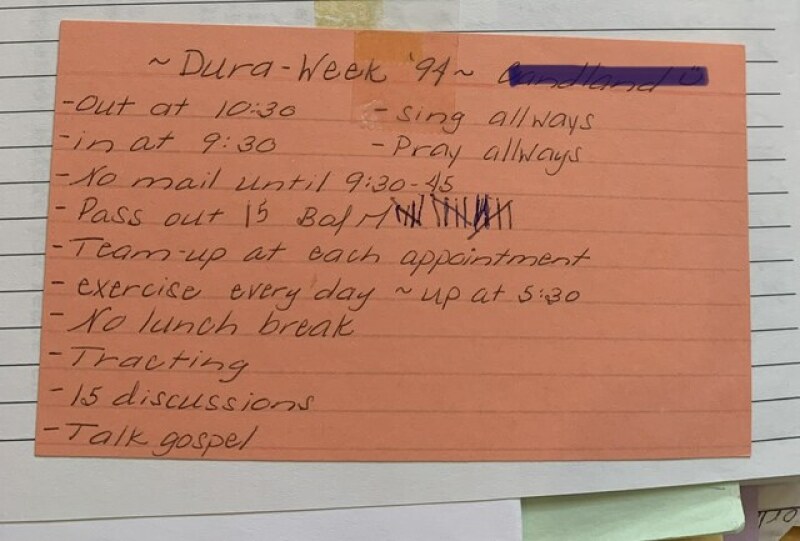 ~ Dura-Week '94 ~
-Out at 10:30 - Sing allways
-in at 9:30 - Pray allways
-No mail until 9:30-45
- Pass out 15 BofM
- Team-up at each appointment
- exercise every day ~ up at 5:30
- No lunch break
- Tracting
- 15 discussions
- Talk gospel